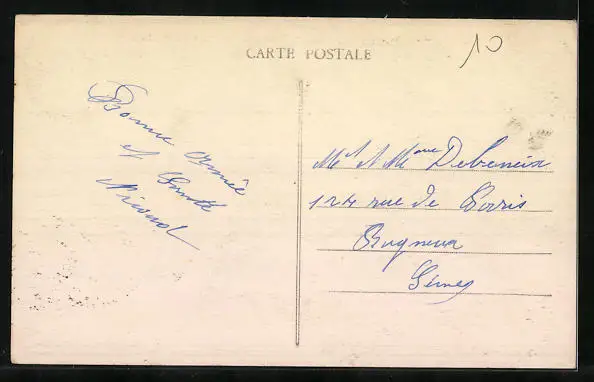 CARTE POSTALE
10
Bonne Année
et Santé
Mr et Mme
124 rue de Paris
Bagneux
Seine